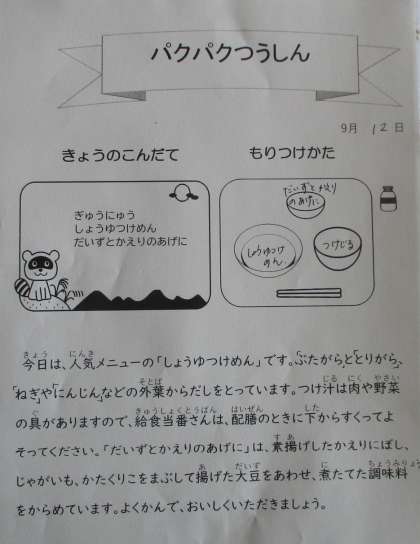 パクパクつうしん
9月 12日
きょうのこんだて
ぎゅうにゅう
しょうゆつけめん
だいずとかえりのあげに
もりつけかた
だいずとかえり
のあげに
しょうゆつけ
めん
つけじる
今日は、人気メニューの「しょうゆつけめん」です。ぶたがらととりがら、
ねぎやにんじんなどの外葉からだしをとっています。つけ汁は肉や野菜
の具がありますので、給食当番さんは、配膳のときに下からすくってよ
そってください。「だいずとかえりのあげに」は、素揚げしたかえりにぼし、
じゃがいも、かたくりこをまぶして揚げた大豆をあわせ、煮たてた調味料
をからめています。よくかんで、おいしくいただきましょう。